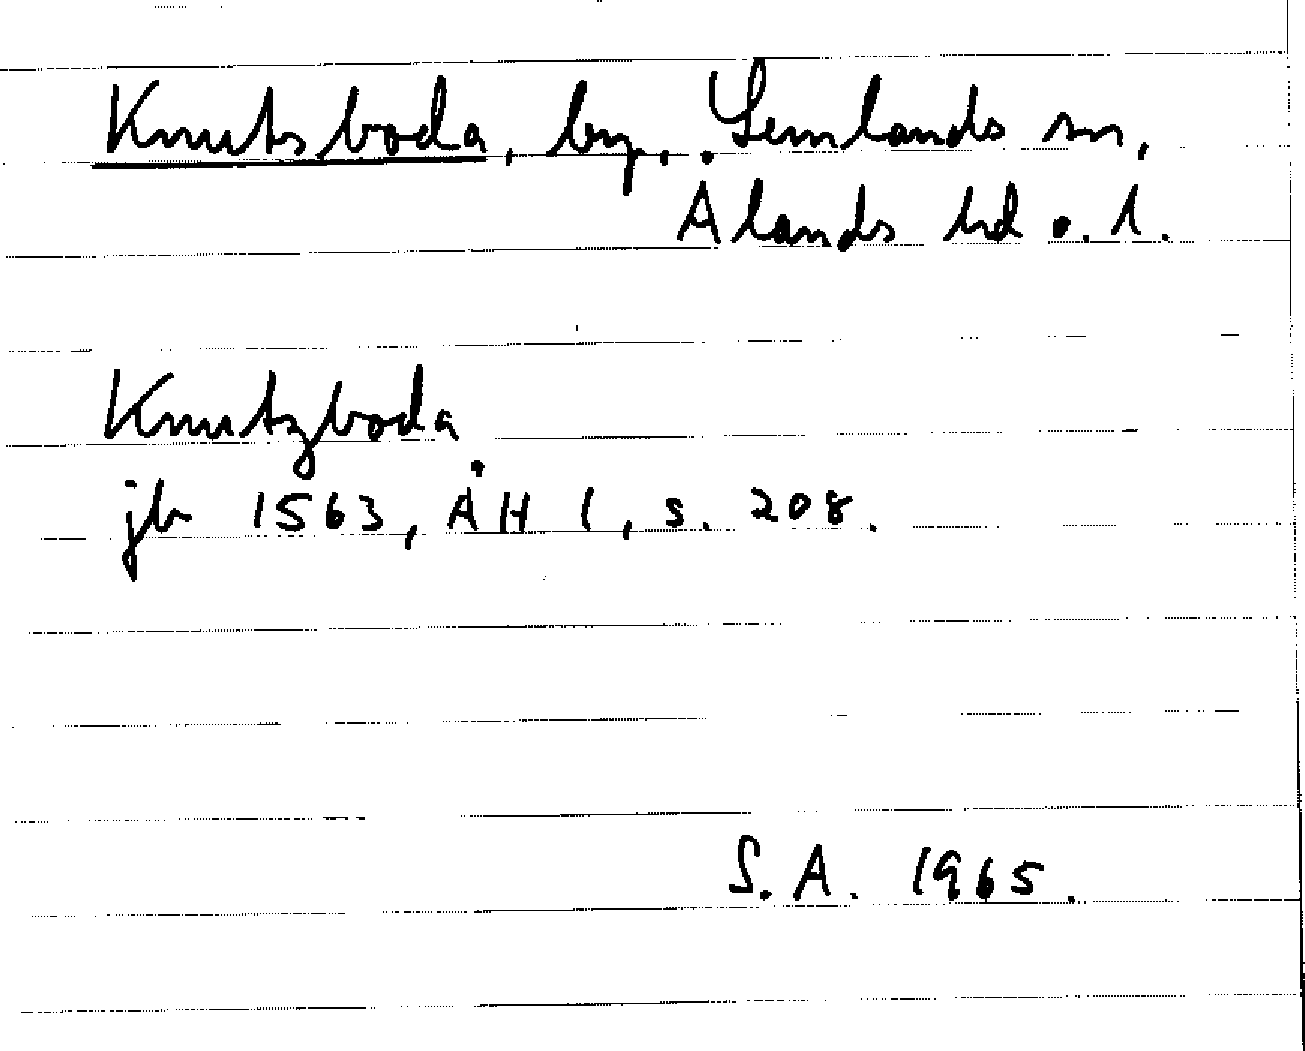 Knutsboda, by, Lemlands sn,
Ålands hd o. l.
Knutzboda
jb 1563, ÅH 1, s. 208.
S. A. 1965.